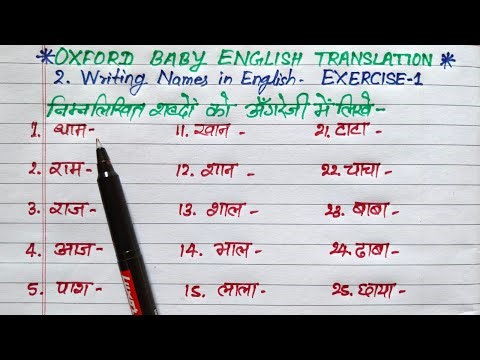 *OXFORD BABY ENGLISH TRANSLATION*
2. Writing Names in English- EXERCISE-1
निम्नलिखित शब्दों को अँगरेजी में लिखें-
1. थाम- 11. खान- 21. टाटा-
2. राम- 12. शान- 22. चाचा-
3. राज- 13. शाल- 23. बाबा-
4. आज- 14. भाल- 24. ढाबा-
5. पाश- 15. लाला- 25. छाया-